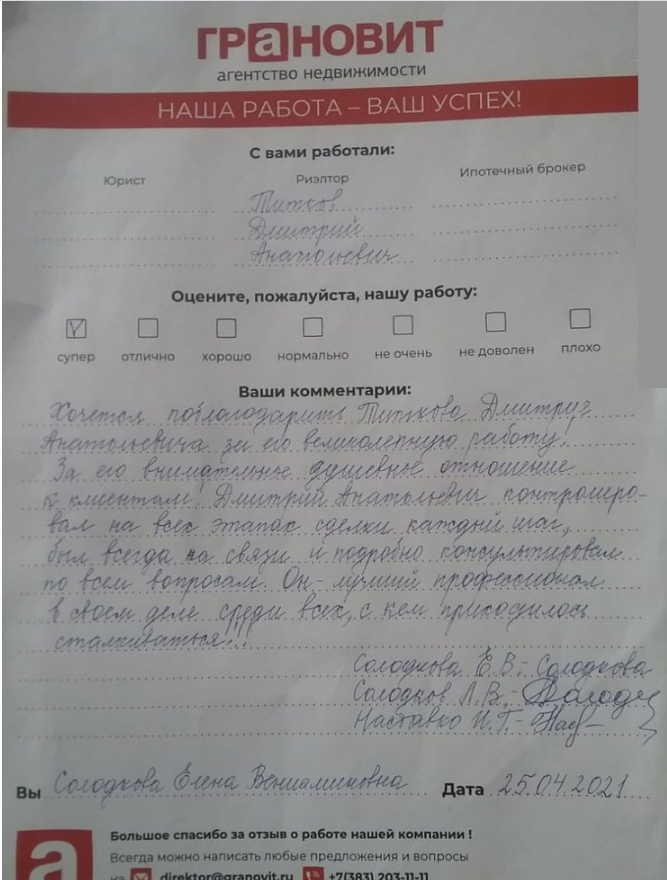 ГРАНОВИТ
агентство недвижимости
НАША РАБОТА – ВАШ УСПЕХ!
С вами работали:
Юрист Риэлтор Ипотечный брокер
Титков
Дмитрий
Анатольевич
Оцените, пожалуйста, нашу работу:
супер отлично хорошо нормально не очень не доволен плохо
Ваши комментарии:
Хочется поблагодарить Титкова Дмитрия
Анатольевича за его великолепную работу!
За его внимательное душевное отношение
к клиентам! Дмитрий Анатольевич контролиро-
вал на всех этапах сделки каждый шаг,
был всегда на связи и подробно консультировал
по всем вопросам. Он - лучший профессионал
в своем деле среди всех, с кем приходилось
сталкиваться!!!
Солодкова Е.В.- Солодкова
Солодков Л.В.-
Наставко И.Г.-
Вы Солодкова Елена Вениаминовна Дата 25.04.2021
Большое спасибо за отзыв о работе нашей компании !
Всегда можно написать любые предложения и вопросы
на direktor@granovit.ru +7(383) 203-11-11
а